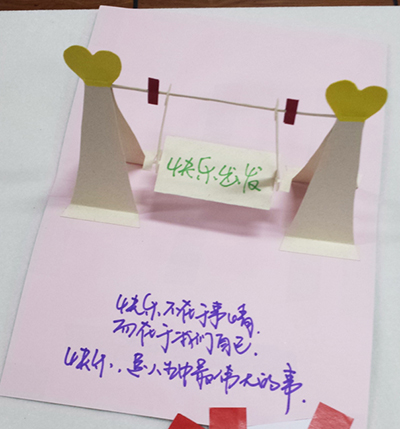 快乐发
快乐不在于事情,
而在于我们自己.
快乐,是人生中最伟大的事.